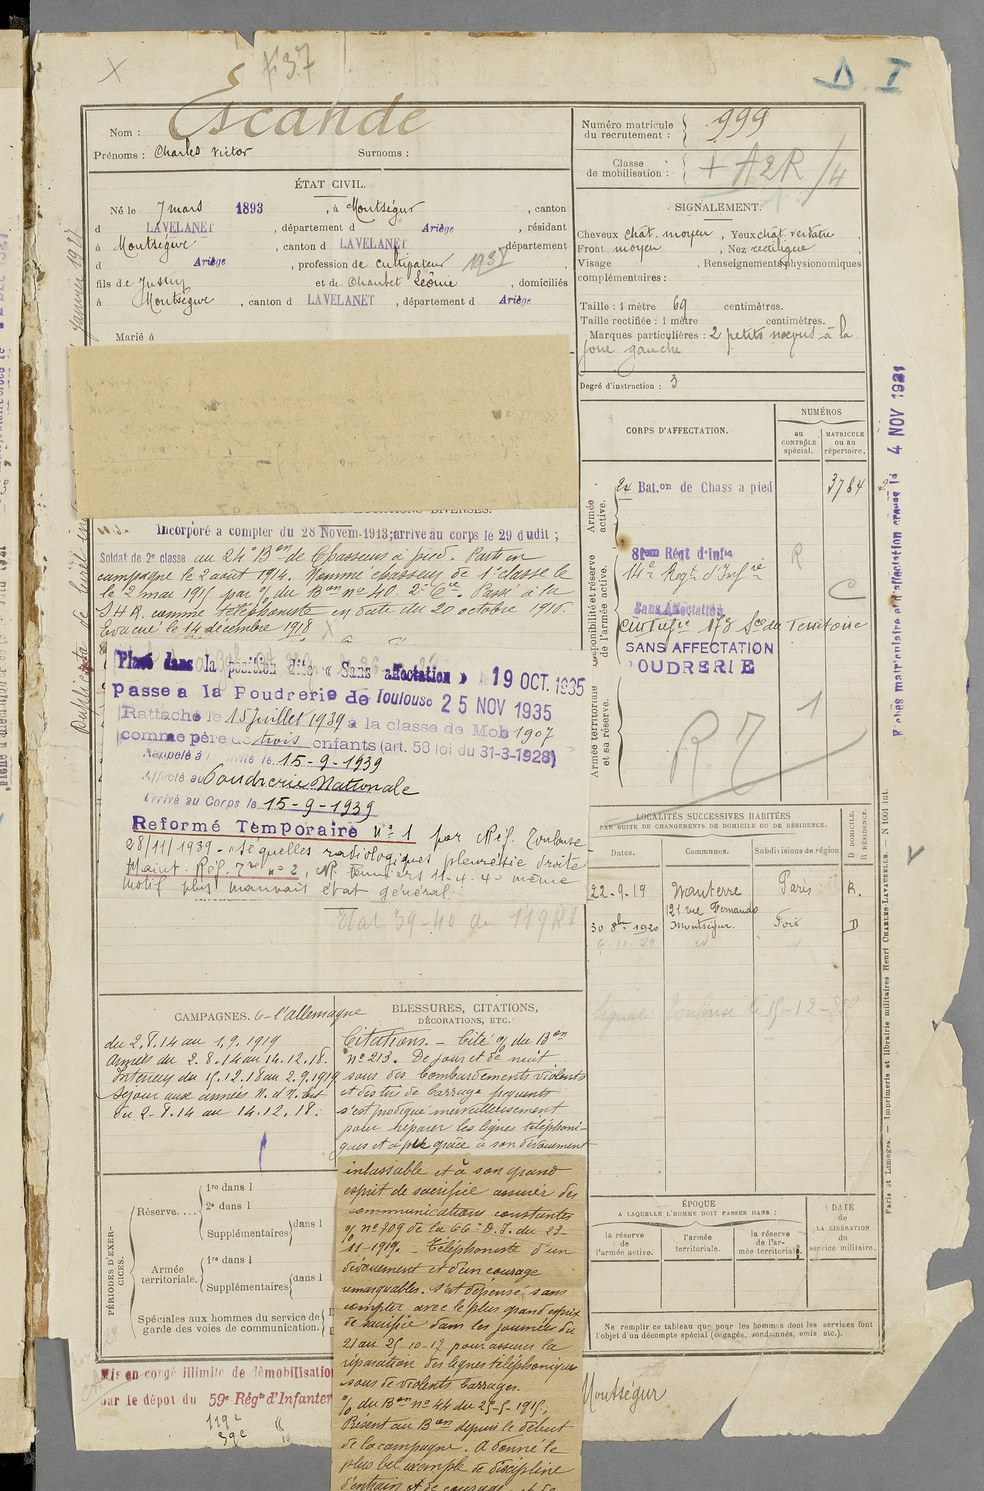 X
D. I
Nom : Escande
Prénoms : Charles Victor Surnoms :
Numéro matricule du recrutement : 999
Classe de mobilisation : + A2R/4
ÉTAT CIVIL.
Né le 7 mars 1893, à Montségur, canton
d LAVELANET, département d Ariège, résidant
à Montségur, canton d LAVELANET, département
d Ariège, profession de cultivateur 1937,
fils de Justin et de Chaubet Léonie, domiciliés
à Montségur, canton d LAVELANET, département d Ariège
Marié à
SIGNALEMENT.
Cheveux chat. moyen, Yeux chat. verdatre,
Front moyen, Nez rectiligne,
Visage , Renseignements physionomiques
complémentaires :
Taille : 1 mètre 69 centimètres.
Taille rectifiée : 1 mètre centimètres.
Marques particulières : 2 petits noevus à la
joue gauche
Degré d'instruction : 3
CORPS D'AFFECTATION.
NUMÉROS
au CONTRÔLE spécial.
MATRICULE ou au répertoire.
Armée active.
24 Bat.on de Chass a pied 3764
Disponibilité et réserve de l'armée active.
81eme Regt d'Infie
14e Regt d'Infie
R
C
Sans Affectation
Territoire
SANS AFFECTATION
POUDRERIE
Armée territoriale et sa réserve.
Incorporé a compter du 28 Novem. 1913; arrive au corps le 29 dudit ;
Soldat de 2e classe au 24e Bon de Chasseurs à pied. Parti en
campagne le 2 août 1914. Nommé chasseur de 1e classe le
le 2 mai 1915 par % du Bon no 40. 2e Cie. Passé à la
S H R. comme téléphoniste en date du 20 octobre 1916.
Evacué le 14 décembre 1918
Placé dans la position dite « Sans affectation » le 19 OCT. 1935
Passe a la Poudrerie de Toulouse 25 NOV 1935
Rattaché le 15 Juillet 1939 à la classe de Mob 1907
comme père de trois enfants (art. 58 loi du 31-3-1928)
Rappelé à l'activité le 15-9-1939
Affecté au Poudrerie Nationale
Arrivé au Corps le 15-9-1939
Reformé Temporaire no 1 par Réf. Toulouse
28/11/1939 - Séquelles radiologiques pleurésie droite
Maint. Réf. Tre no 2, 11-4-40 même
motif plus mauvais état général.
Etat 39-40 du 119 RI
LOCALITÉS SUCCESSIVES HABITÉES
PAR SUITE DE CHANGEMENTS DE DOMICILE OU DE RÉSIDENCE.
Dates. Communes. Subdivisions de région D. DOMICILE. R. RÉSIDENCE.
22-9-19 Nanterre Paris R.
121 rue Fernando
30 8bre 1920 Montségur. Foix D
6-11-29
CAMPAGNES. C. l'allemagne
du 2.8.14 au 1.9.1919
Armées du 2.8.14 au 14.12.18.
Intérieur du 15.12.18 au 2.9.1919
Séjour aux armées N. et N. Est
du 2-8.14 au 14.12.18.
BLESSURES, CITATIONS,
DÉCORATIONS, ETC.
Citations. - Cité % du Bon
no 213. De jour et de nuit
sous des bombardements violents
et des tirs de barrage fréquents
s'est prodigué merveilleusement
pour réparer les lignes téléphoni-
ques et a pu grâce à son dévouement
inlassable et à son grand
esprit de sacrifice assurer des
communications constantes
% no 709 de la 66e D.I. du 23-
11-1917. - Téléphoniste d'un
dévouement et d'un courage
remarquables. S'est dépensé sans
compter avec le plus grand esprit
de sacrifice dans les journées du
21 au 25-10-17 pour assurer la
réparation des lignes téléphoniques
sous de violents barrages.
% du Bon no 44 du 25-5-1915;
Présent au Bon depuis le début
de la campagne. A donné le
plus bel exemple de discipline
d'entrain et de courage
PÉRIODES D'EXERCICES.
Réserve.... 1re dans l
2e dans l
Supplémentaires dans l
Armée territoriale. 1re dans l
Supplémentaires dans l
Spéciales aux hommes du service de
garde des voies de communication.
ÉPOQUE
A LAQUELLE L'HOMME DOIT PASSER DANS :
la réserve de l'armée active.
l'armée territoriale.
la réserve de l'armée territoriale.
DATE de LA LIBÉRATION du service militaire.
Ne remplir ce tableau que pour les hommes dont les services font
l'objet d'un décompte spécial (engagés, condamnés, omis, etc.).
Mis en congé illimité de démobilisation
par le dépot du 59e Régt d'Infanter
119e
39e
Montségur
4 NOV 1921
Paris et Limoges. — Imprimerie et librairie militaires Henri CHARLES-LAVAUZELLE. — N 1001 int.